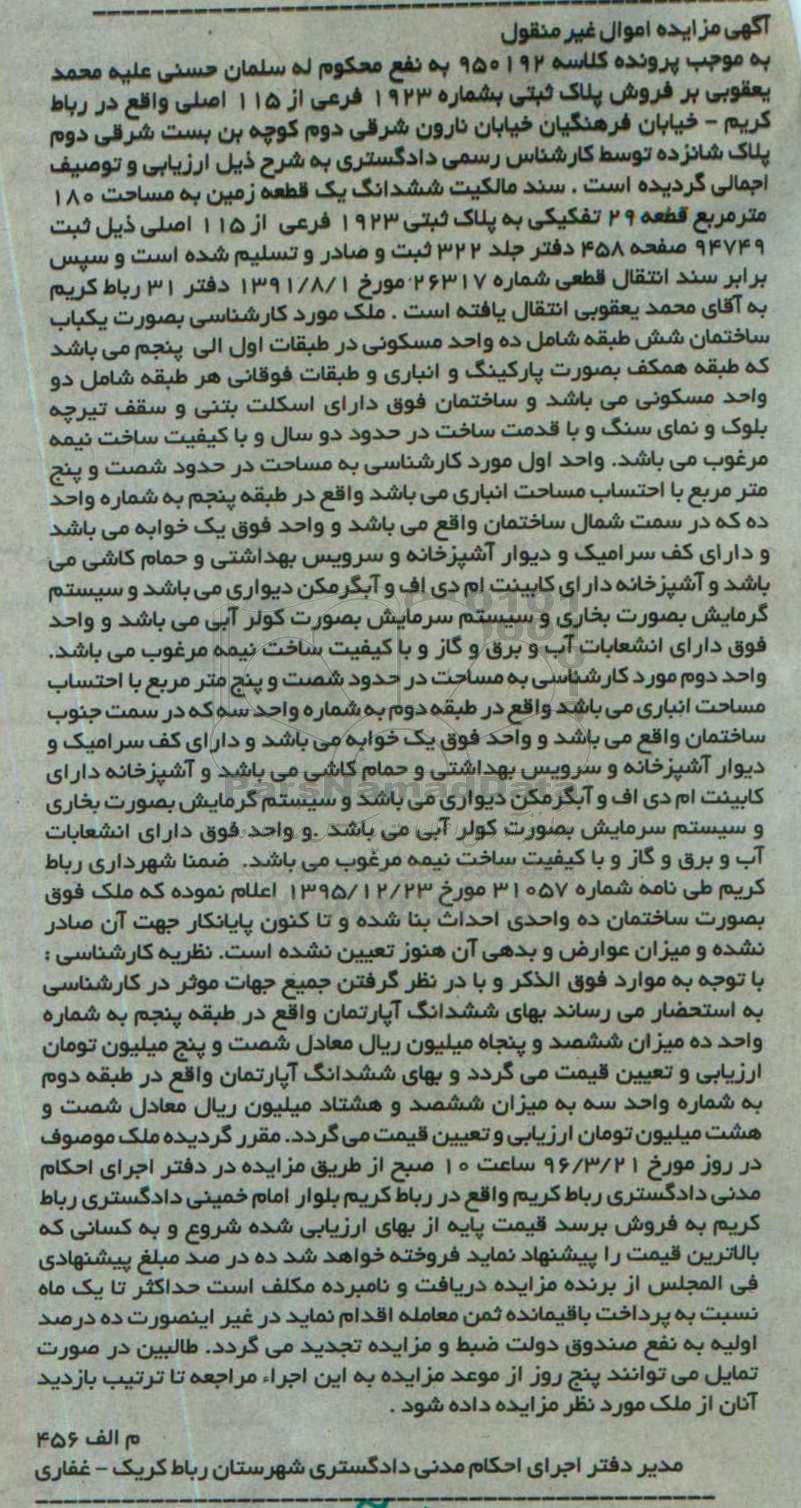 آگهی مزایده اموال غیر منقول
به موجب پرونده کلاسه ۹۵۰۱۹۲ به نفع محکوم له سلمان حسنی علیه محمد
یعقوبی بر فروش پلاک ثبتی بشماره ۱۹۲۳ فرعی از ۱۱۵ اصلی واقع در رباط
کریم – خیابان فرهنگیان خیابان نارون شرقی دوم کوچه بن بست شرقی دوم
پلاک شانزده توسط کارشناس رسمی دادگستری به شرح ذیل ارزیابی و توصیف
اجمالی گردیده است . سند مالکیت ششدانگ یک قطعه زمین به مساحت ۱۸۰
مترمربع قطعه ۲۹ تفکیکی به پلاک ثبتی ۱۹۲۳ فرعی از ۱۱۵ اصلی ذیل ثبت
۹۴۷۴۹ صفحه ۴۵۸ دفتر جلد ۳۲۲ ثبت و صادر و تسلیم شده است و سپس
برابر سند انتقال قطعی شماره ۲۶۳۱۷ مورخ ۱۳۹۱/۸/۱ دفتر ۳۱ رباط کریم
به آقای محمد یعقوبی انتقال یافته است . ملک مورد کارشناسی بصورت یکباب
ساختمان شش طبقه شامل ده واحد مسکونی در طبقات اول الی پنجم می باشد
که طبقه همکف بصورت پارکینگ و انباری و طبقات فوقانی هر طبقه شامل دو
واحد مسکونی می باشد و ساختمان فوق دارای اسکلت بتنی و سقف تیرچه
بلوک و نمای سنگ و با قدمت ساخت در حدود دو سال و با کیفیت ساخت نیمه
مرغوب می باشد. واحد اول مورد کارشناسی به مساحت در حدود شصت و پنج
متر مربع با احتساب مساحت انباری می باشد واقع در طبقه پنجم به شماره واحد
ده که در سمت شمال ساختمان واقع می باشد و واحد فوق یک خوابه می باشد
و دارای کف سرامیک و دیوار آشپزخانه و سرویس بهداشتی و حمام کاشی می
باشد و آشپزخانه دارای کابینت ام دی اف و آبگرمکن دیواری می باشد و سیستم
گرمایش بصورت بخاری و سیستم سرمایش بصورت کولر آبی می باشد و واحد
فوق دارای انشعابات آب و برق و گاز و با کیفیت ساخت نیمه مرغوب می باشد.
واحد دوم مورد کارشناسی به مساحت در حدود شصت و پنج متر مربع با احتساب
مساحت انباری می باشد واقع در طبقه دوم به شماره واحد سه که در سمت جنوب
ساختمان واقع می باشد و واحد فوق یک خوابه می باشد و دارای کف سرامیک و
دیوار آشپزخانه و سرویس بهداشتی و حمام کاشی می باشد و آشپزخانه دارای
کابینت ام دی اف و آبگرمکن دیواری می باشد و سیستم گرمایش بصورت بخاری
و سیستم سرمایش بصورت کولر آبی می باشد .و واحد فوق دارای انشعابات
آب و برق و گاز و با کیفیت ساخت نیمه مرغوب می باشد. ضمنا شهرداری رباط
کریم طی نامه شماره ۳۱۰۵۷ مورخ ۱۳۹۵/۱۲/۲۳ اعلام نموده که ملک فوق
بصورت ساختمان ده واحدی احداث بنا شده و تا کنون پایانکار جهت آن صادر
نشده و میزان عوارض و بدهی آن هنوز تعیین نشده است. نظریه کارشناسی :
با توجه به موارد فوق الذکر و با در نظر گرفتن جمیع جهات موثر در کارشناسی
به استحضار می رساند بهای ششدانگ آپارتمان واقع در طبقه پنجم به شماره
واحد ده میزان ششصد و پنجاه میلیون ریال معادل شصت و پنج میلیون تومان
ارزیابی و تعیین قیمت می گردد و بهای ششدانگ آپارتمان واقع در طبقه دوم
به شماره واحد سه به میزان ششصد و هشتاد میلیون ریال معادل شصت و
هشت میلیون تومان ارزیابی و تعیین قیمت می گردد. مقرر گردیده ملک موصوف
در روز مورخ ۹۶/۳/۲۱ ساعت ۱۰ صبح از طریق مزایده در دفتر اجرای احکام
مدنی دادگستری رباط کریم واقع در رباط کریم بلوار امام خمینی دادگستری رباط
کریم به فروش برسد قیمت پایه از بهای ارزیابی شده شروع و به کسانی که
بالاترین قیمت را پیشنهاد نماید فروخته خواهد شد ده در صد مبلغ پیشنهادی
فی المجلس از برنده مزایده دریافت و نامبرده مکلف است حداکثر تا یک ماه
نسبت به پرداخت باقیمانده ثمن معامله اقدام نماید در غیر اینصورت ده درصد
اولیه به نفع صندوق دولت ضبط و مزایده تجدید می گردد. طالبین در صورت
تمایل می توانند پنج روز از موعد مزایده به این اجراء مراجعه تا ترتیب بازدید
آنان از ملک مورد نظر مزایده داده شود .
م الف ۴۵۶
مدیر دفتر اجرای احکام مدنی دادگستری شهرستان رباط کریک – غفاری